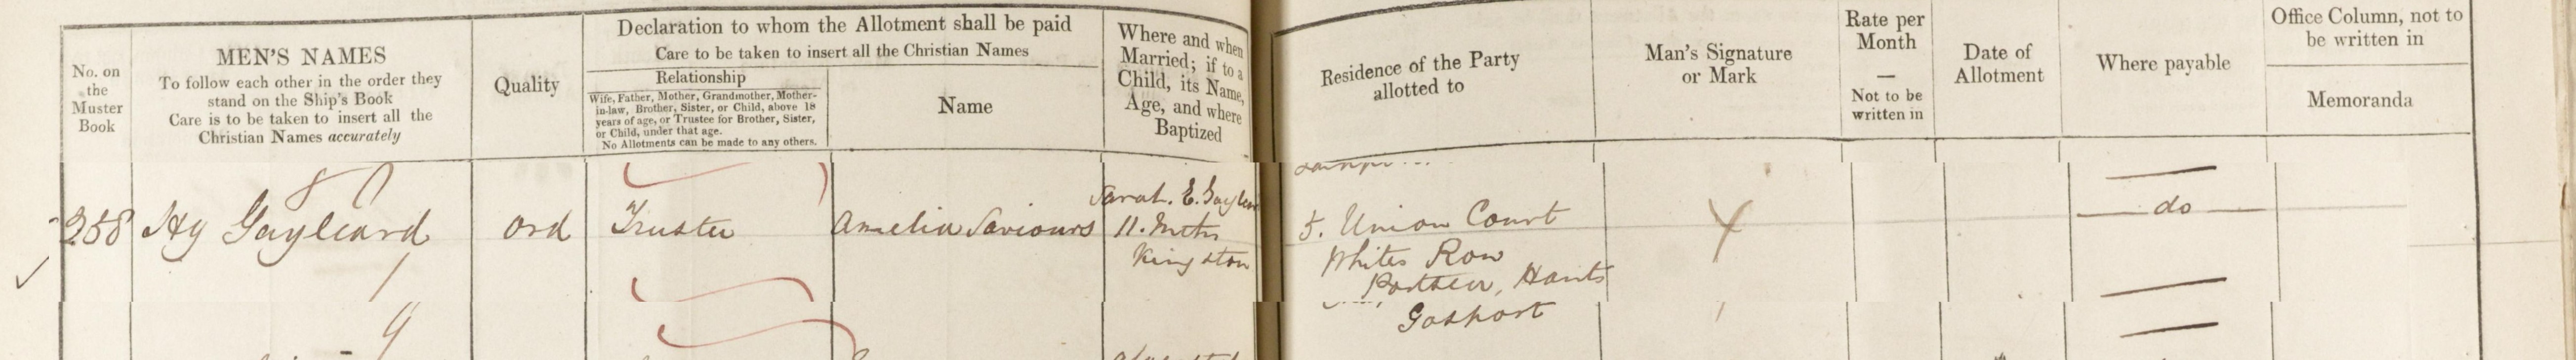 No. on
the
Muster
Book
MEN'S NAMES
To follow each other in the order they
stand on the Ship's Book
Care is to be taken to insert all the
Christian Names accurately
Quality
Declaration to whom the Allotment shall be paid
Care to be taken to insert all the Christian Names
Relationship
Wife, Father, Mother, Grandmother, Mother-
in-law, Brother, Sister, or Child, above 18
years of age, or Trustee for Brother, Sister,
or Child, under that age.
No Allotments can be made to any others.
Name
Where and when
Married; if to a
Child, its Name,
Age, and where
Baptized
Residence of the Party
allotted to
Man's Signature
or Mark
Rate per
Month
—
Not to be
written in
Date of
Allotment
Where payable
Office Column, not to
be written in
Memoranda
258
Hy Gayleard
Ord
Trustee
Amelia Saviours
Sarah. E.
11. Mths
Kingston
5. Union Court
Whites Row
Portsea, Hants
do
Gosport